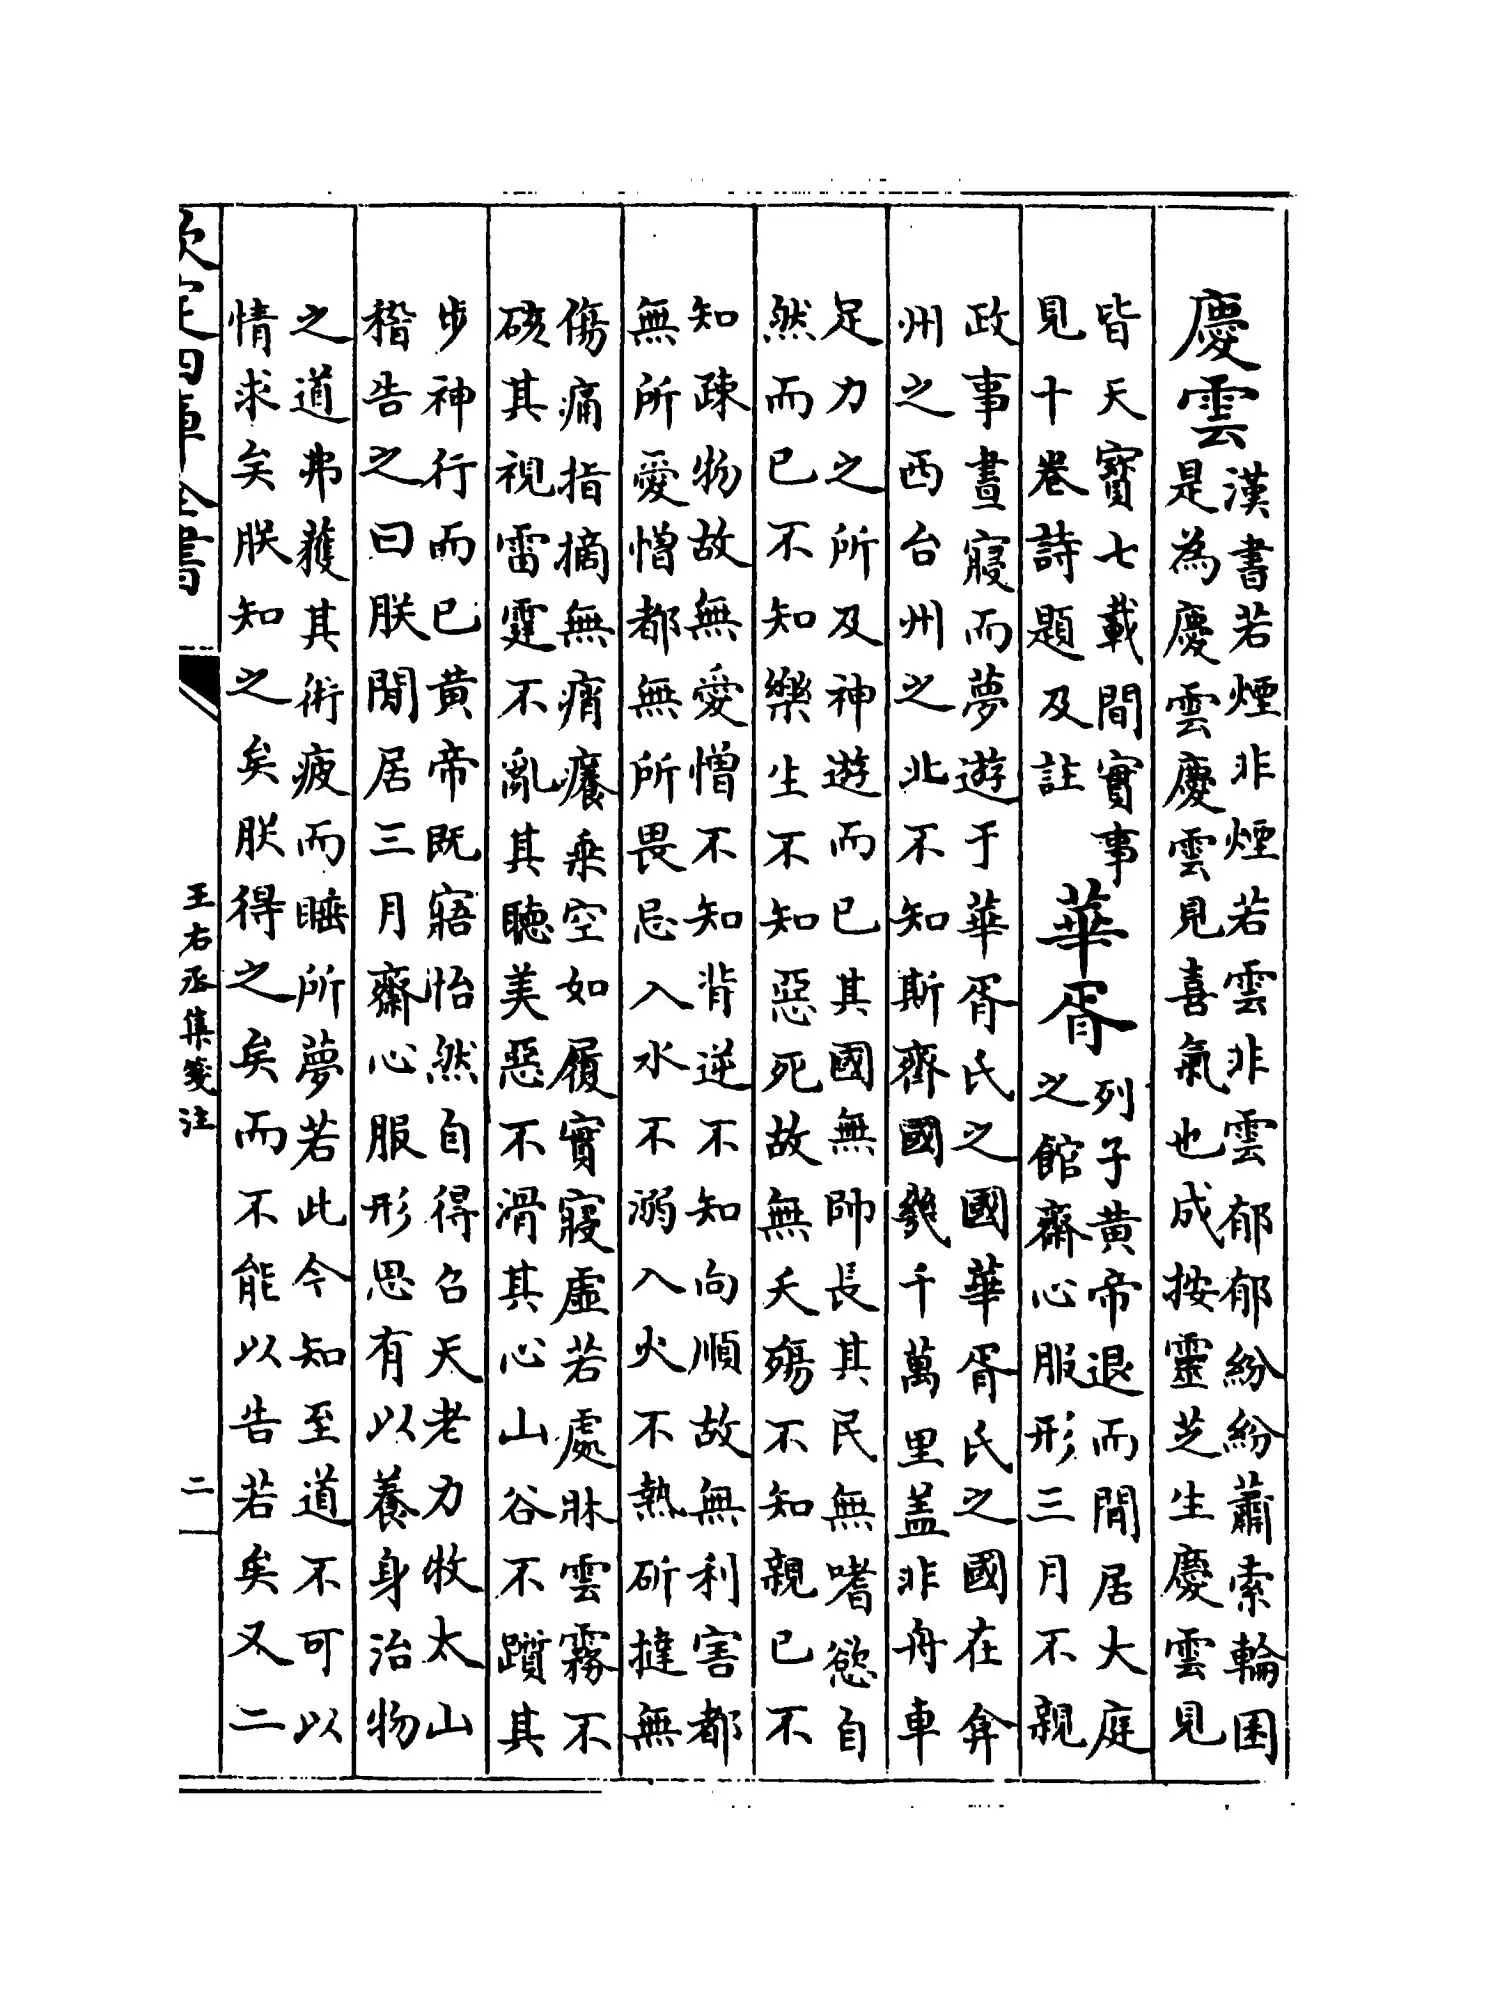 慶雲
漢書若煙非煙若雲非雲郁郁紛紛蕭索輪囷
是為慶雲慶雲見喜氣也成按靈芝生慶雲見
皆天寶七載間實事
見十卷詩題及註
華胥
列子黃帝退而間居大庭
之館齋心服形三月不親
政事晝寢而夢遊于華胥氏之國華胥氏之國在弇
州之西台州之北不知斯齊國幾千萬里蓋非舟車
足力之所及神遊而已其國無帥長其民無嗜慾自
然而已不知樂生不知惡死故無夭殤不知親已不
知疎物故無愛憎不知背逆不知向順故無利害都
無所愛憎都無所畏忌入水不溺入火不熱斫撻無
傷痛指摘無痟癢乘空如履實寢虛若處牀雲霧不
硋其視雷霆不亂其聽美惡不滑其心山谷不躓其
步神行而已黃帝既寤怡然自得召天老力牧太山
稽告之曰朕閒居三月齋心服形思有以養身治物
之道弗獲其術疲而睡所夢若此今知至道不可以
情求矣朕知之矣朕得之矣而不能以告若矣又二
欽定四庫全書
王右丞集箋注
二